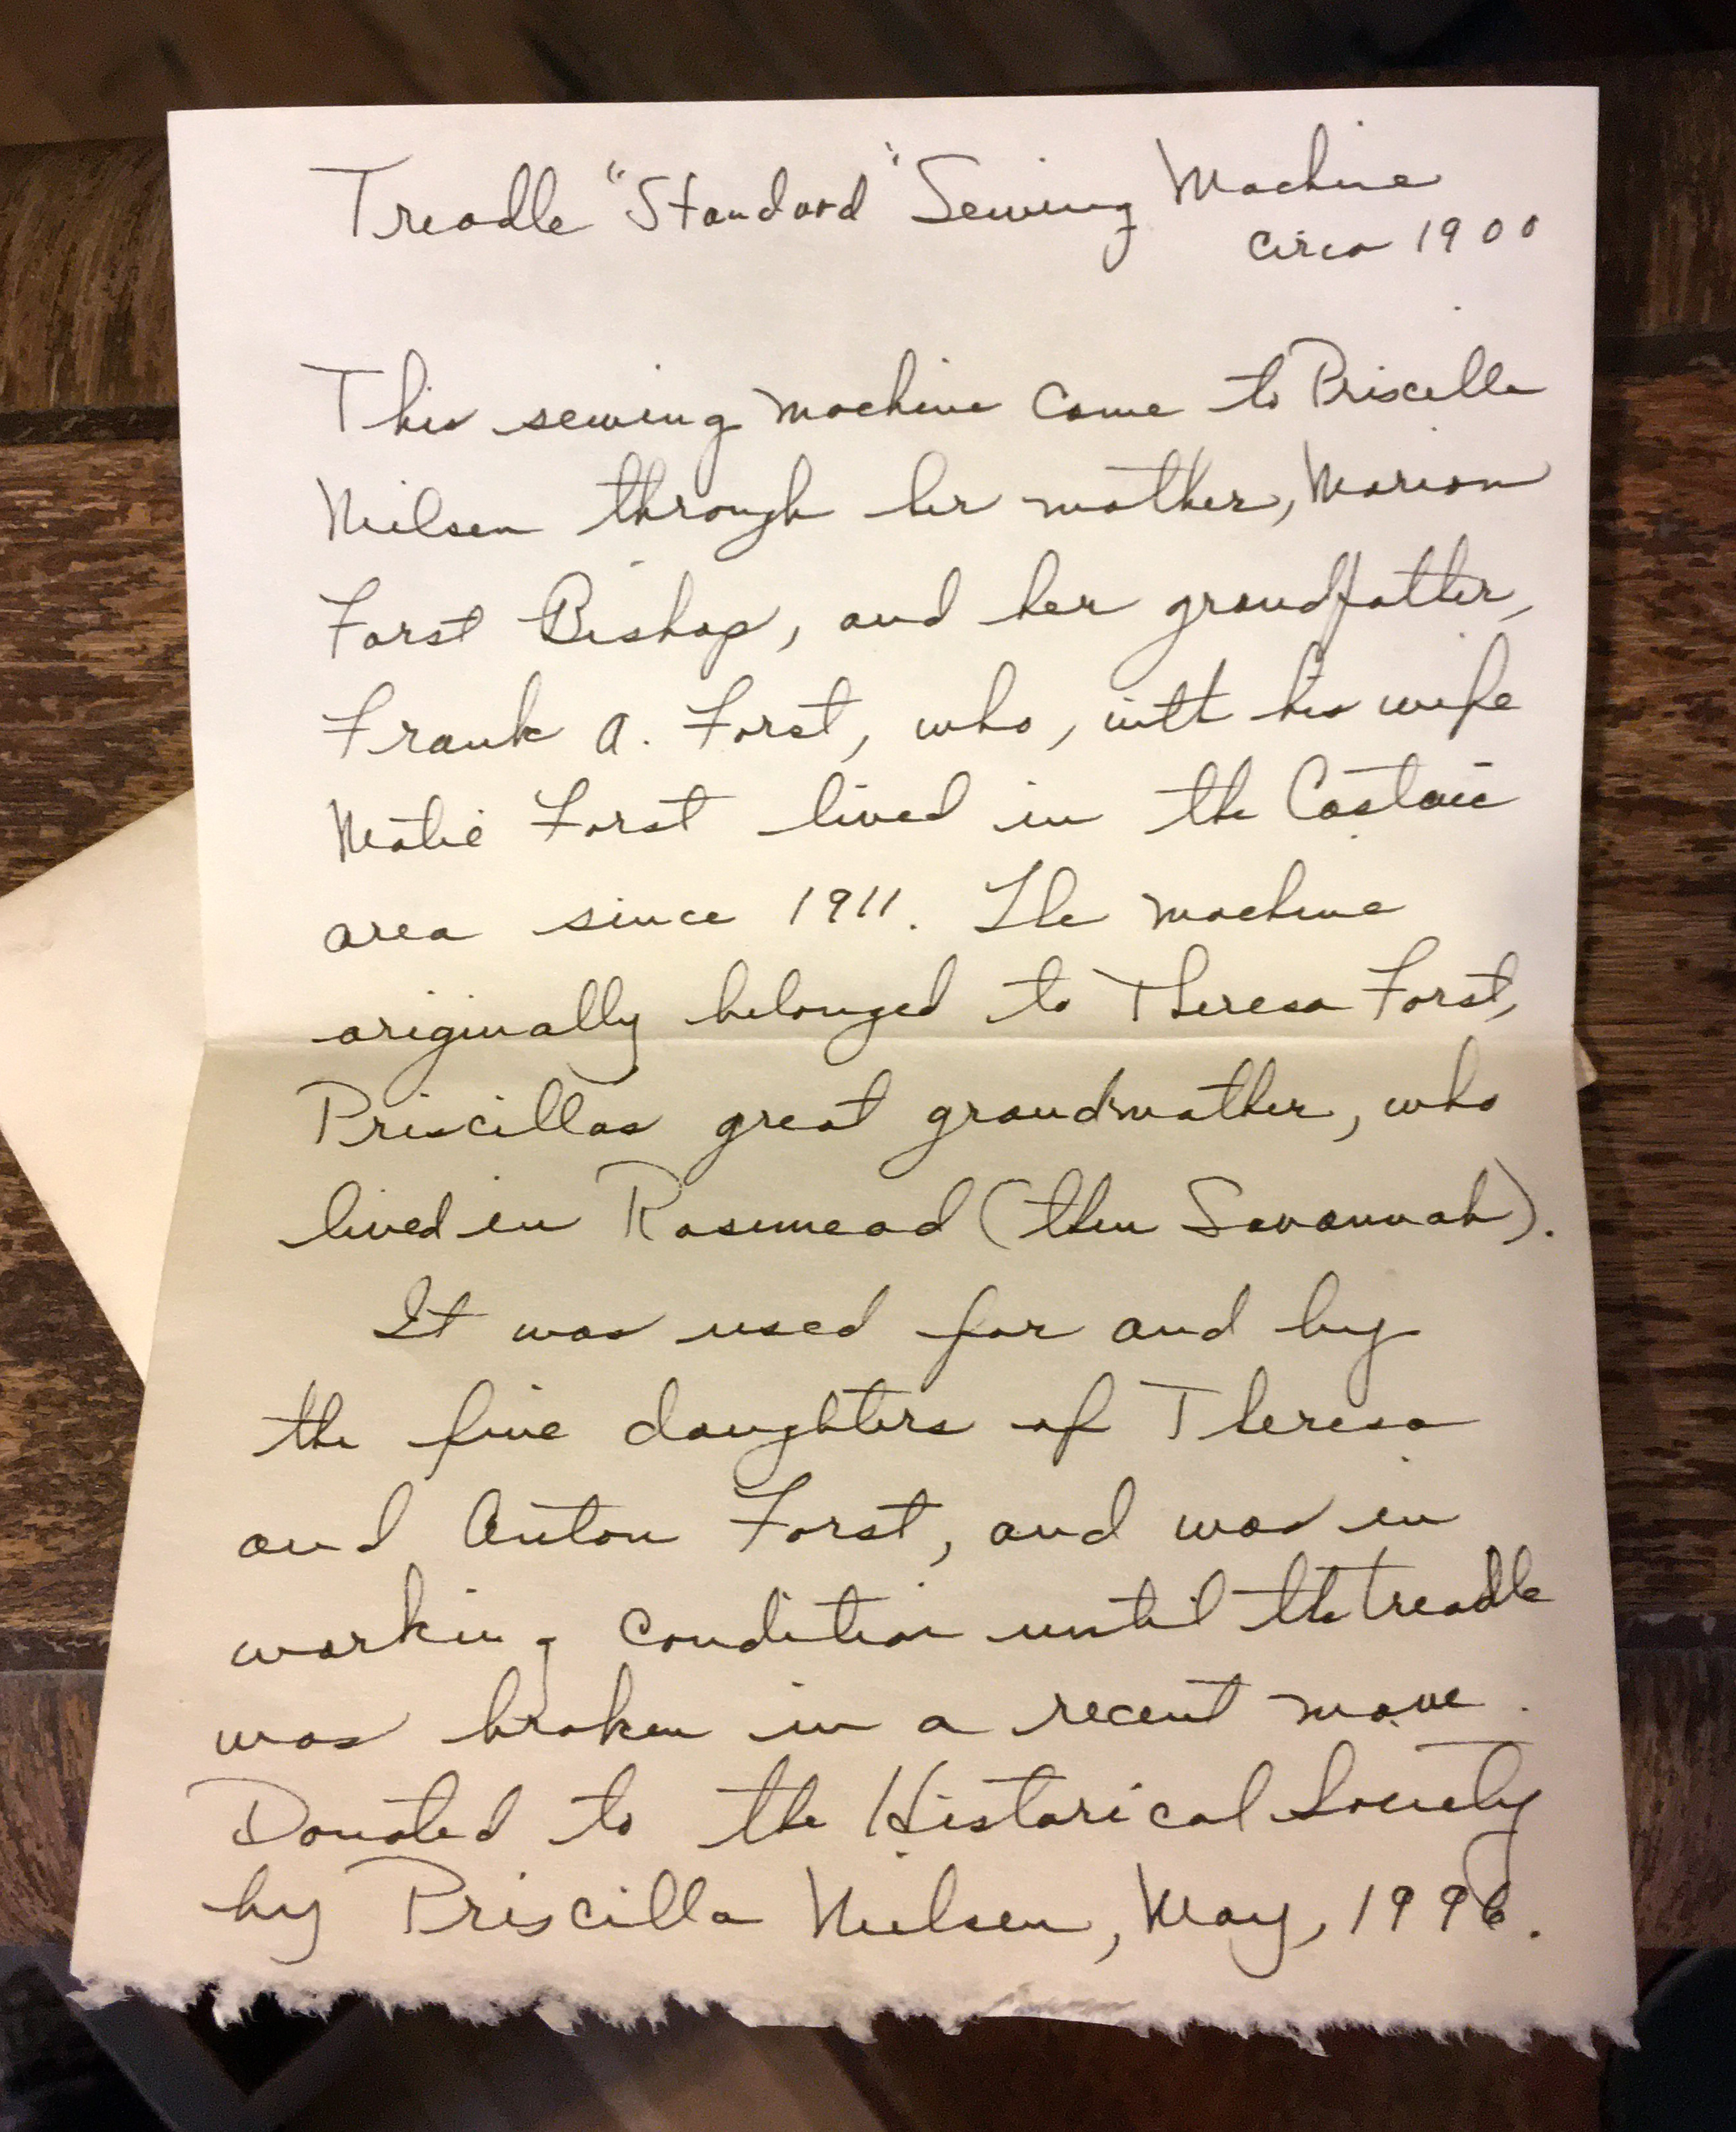 Treadle "Standard" Sewing Machine
circa 1900
This sewing machine came to Priscilla
Nielsen through her mother, Marion
Forst Bishop, and her grandfather,
Frank A. Forst, who, with his wife
Matie Forst lived in the Castaic
area since 1911. The machine
originally belonged to Theresa Forst,
Priscillas great grandmother, who
lived in Rosemead (then Savannah).
It was used for and by
the five daughters of Theresa
and Anton Forst, and was in
working condition until the treadle
was broken in a recent move.
Donated to the Historical Society
by Priscilla Nielsen, May, 1996.